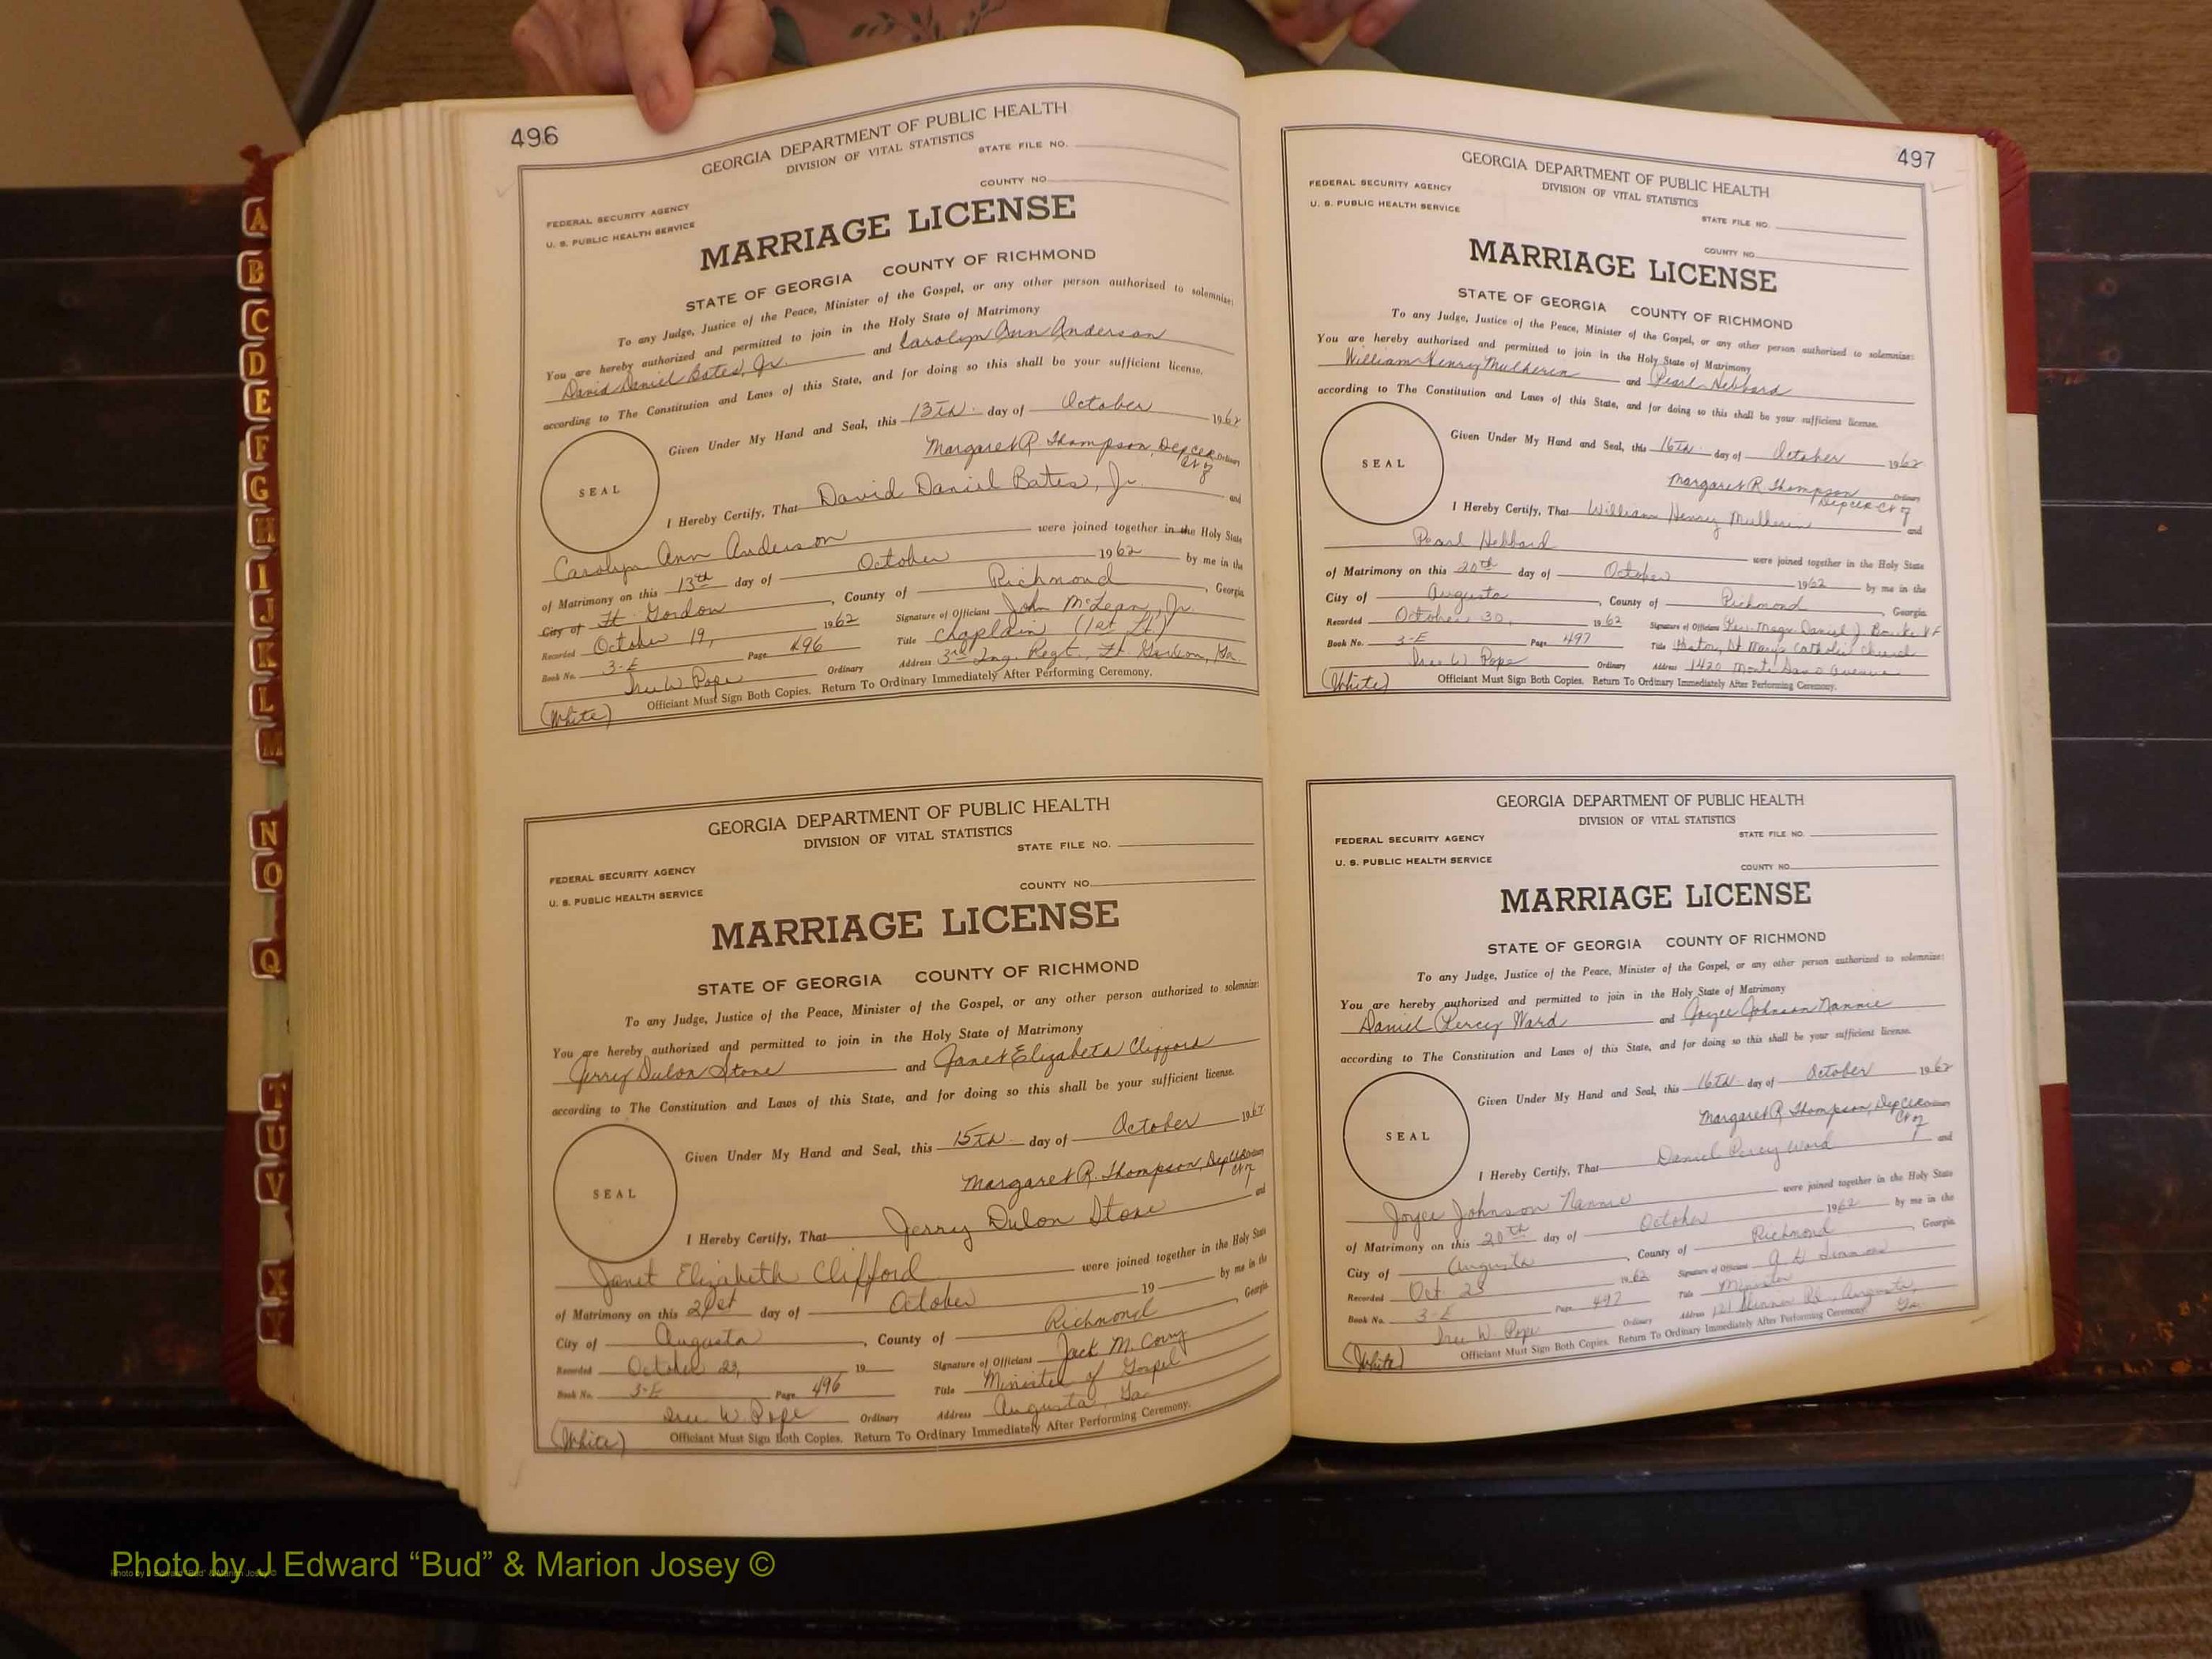 496
GEORGIA DEPARTMENT OF PUBLIC HEALTH
DIVISION OF VITAL STATISTICS
STATE FILE NO.
COUNTY NO.
FEDERAL SECURITY AGENCY
U. S. PUBLIC HEALTH SERVICE
MARRIAGE LICENSE
STATE OF GEORGIA COUNTY OF RICHMOND
To any Judge, Justice of the Peace, Minister of the Gospel, or any other person authorized to solemnize:
You are hereby authorized and permitted to join in the Holy State of Matrimony
David Daniel Bates, Jr. and Carolyn Ann Anderson
according to The Constitution and Laws of this State, and for doing so this shall be your sufficient license.
Given Under My Hand and Seal, this 13th day of October 1962
Margaret R. Thompson, Dep Clk Ordinary
SEAL
I Hereby Certify, That David Daniel Bates, Jr. and
Carolyn Ann Anderson were joined together in the Holy State
of Matrimony on this 13th day of October 1962 by me in the
City of Ft. Gordon, County of Richmond, Georgia
Recorded October 19, 1962 Signature of Officiant John McLean, Jr.
Book No. 3-E Page 496 Title Chaplain (1st Lt.)
Iree W. Pope Ordinary Address 3rd Regt., Ft. Gordon, Ga.
(White) Officiant Must Sign Both Copies. Return To Ordinary Immediately After Performing Ceremony.
GEORGIA DEPARTMENT OF PUBLIC HEALTH
DIVISION OF VITAL STATISTICS
STATE FILE NO.
FEDERAL SECURITY AGENCY
COUNTY NO.
U. S. PUBLIC HEALTH SERVICE
MARRIAGE LICENSE
STATE OF GEORGIA COUNTY OF RICHMOND
To any Judge, Justice of the Peace, Minister of the Gospel, or any other person authorized to solemnize:
You are hereby authorized and permitted to join in the Holy State of Matrimony
Jerry Dulon Stone and Janet Elizabeth Clifford
according to The Constitution and Laws of this State, and for doing so this shall be your sufficient license.
Given Under My Hand and Seal, this 15th day of October 1962
Margaret R. Thompson, Dep Clk Ordinary
SEAL
I Hereby Certify, That Jerry Dulon Stone and
Janet Elizabeth Clifford were joined together in the Holy State
of Matrimony on this 21st day of October 19 by me in the
City of Augusta, County of Richmond, Georgia
Recorded October 23, 19 Signature of Officiant Jack M.
Book No. 3-E Page 496 Title Minister of Gospel
Iree W. Pope Ordinary Address Augusta, Ga.
(White) Officiant Must Sign Both Copies. Return To Ordinary Immediately After Performing Ceremony.
497
GEORGIA DEPARTMENT OF PUBLIC HEALTH
DIVISION OF VITAL STATISTICS
FEDERAL SECURITY AGENCY
U. S. PUBLIC HEALTH SERVICE
STATE FILE NO.
COUNTY NO.
MARRIAGE LICENSE
STATE OF GEORGIA COUNTY OF RICHMOND
To any Judge, Justice of the Peace, Minister of the Gospel, or any other person authorized to solemnize:
You are hereby authorized and permitted to join in the Holy State of Matrimony
William Henry Mulherin and Pearl Hebbard
according to The Constitution and Laws of this State, and for doing so this shall be your sufficient license.
Given Under My Hand and Seal, this 16th day of October 1962
Margaret R. Thompson Ordinary
SEAL
I Hereby Certify, That William Henry Mulherin and
Pearl Hebbard were joined together in the Holy State
of Matrimony on this 20th day of October 1962 by me in the
City of Augusta, County of Richmond, Georgia
Recorded October 30, 1962 Signature of Officiant Rev. Daniel J. Bourke
Book No. 3-E Page 497 Title Pastor, St. Mary's Catholic Church
Iree W. Pope Ordinary Address 1420 Monte Sano Avenue
(White) Officiant Must Sign Both Copies. Return To Ordinary Immediately After Performing Ceremony.
GEORGIA DEPARTMENT OF PUBLIC HEALTH
DIVISION OF VITAL STATISTICS
FEDERAL SECURITY AGENCY
STATE FILE NO.
U. S. PUBLIC HEALTH SERVICE
COUNTY NO.
MARRIAGE LICENSE
STATE OF GEORGIA COUNTY OF RICHMOND
To any Judge, Justice of the Peace, Minister of the Gospel, or any other person authorized to solemnize:
You are hereby authorized and permitted to join in the Holy State of Matrimony
Daniel Percy Ward and Joyce Johnson Nannie
according to The Constitution and Laws of this State, and for doing so this shall be your sufficient license.
Given Under My Hand and Seal, this 16th day of October 1962
Margaret R. Thompson, Dep Clk Ordinary
SEAL
I Hereby Certify, That Daniel Percy Ward and
Joyce Johnson Nannie were joined together in the Holy State
of Matrimony on this 20th day of October 1962 by me in the
City of Augusta, County of Richmond, Georgia
Recorded Oct. 23 1962 Signature of Officiant
Book No. 3-E Page 497 Title Minister
Iree W. Pope Ordinary Address Rd., Augusta, Ga.
(White) Officiant Must Sign Both Copies. Return To Ordinary Immediately After Performing Ceremony.
A
B
C
D
E
F
G
H
I
J
K
L
M
N
O
Q
T
U
V
X
Y
Photo by J Edward “Bud” & Marion Josey ©
Photo by J Edward "Bud" & Marion Josey ©